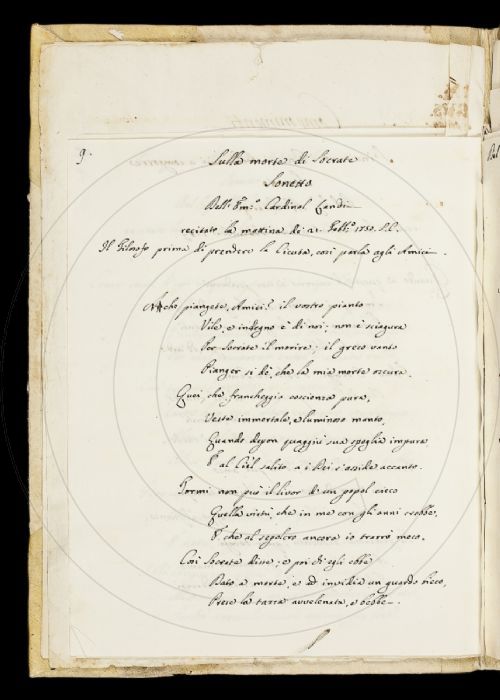 9.
Sulla morte di Socrate
Sonetto
Dell' Em.o Cardinal
recitato la mattina de' 21. Febb.o 1750.
Il Filosofo prima di prendere la Cicuta, così parla agli Amici.
A che piangete, Amici? il vostro pianto
Vile, e indegno è di noi; non è sciagura
Per Socrate il morire; il greco vanto
Pianger si dè, che la mia morte oscura.
Quei che francheggia coscienza pura,
Veste immortale, e luminoso manto,
Quando depon quaggiù sua spoglia impura
E al Ciel salito a i Dei s'asside accanto.
Tormi non può il livor di un popol cieco
Quella virtù, che in me con gli anni crebbe,
E che al sepolcro ancora io trarrò meco.
Così Socrate disse; e poi di egli ebbe
Dato a morte, e ad invidia un guardo bieco,
Prese la tazza avvelenata, e bebbe.